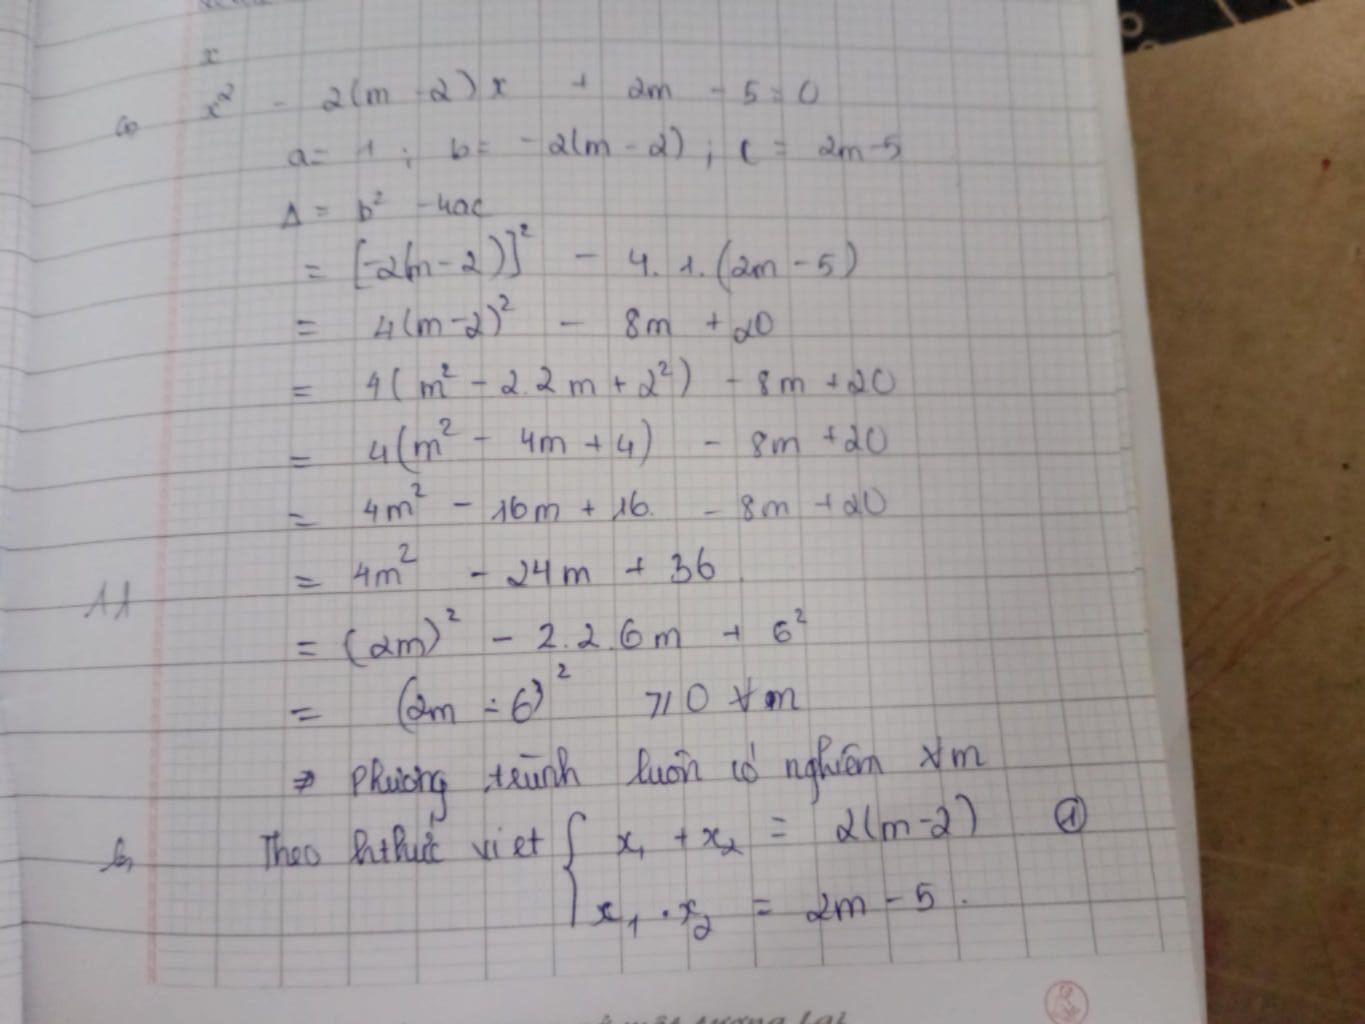 x
a) x² - 2(m - 2)x + 2m - 5 = 0
a = 1 ; b = -2(m - 2) ; c = 2m - 5
Δ = b² - 4ac
= [-2(m - 2)]² - 4. 1. (2m - 5)
= 4(m - 2)² - 8m + 20
= 4(m² - 2.2m + 2²) - 8m + 20
= 4(m² - 4m + 4) - 8m + 20
= 4m² - 16m + 16 - 8m + 20
= 4m² - 24m + 36
= (2m)² - 2.2.6m + 6²
= (2m - 6)² ⩾ 0 ∀m
⇒ Phương trình luôn có nghiệm ∀m
b, Theo hthức viet { x₁ + x₂ = 2(m - 2) ①
x₁ . x₂ = 2m - 5.